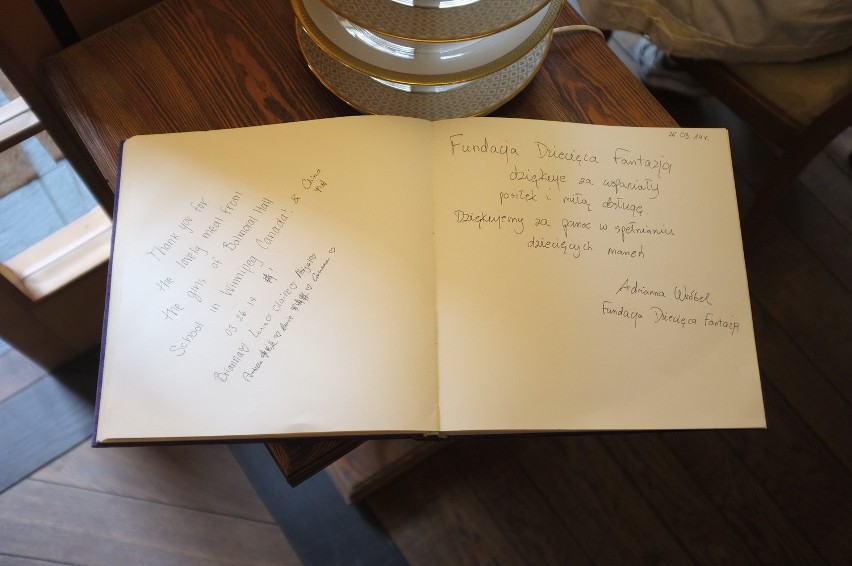 Thank you for
the lovely meal from
the girls of Balmoral Hall
School in Winnipeg Canada! & China
03.26.14
Brianna♡ Luna♡ Claire♡ Abigail♡
26.03.14r.
Fundacja Dziecięca Fantazja
dziękuje za wspaniały
posiłek i miłą obsługę.
Dziękujemy za pomoc w spełnianiu
dziecięcych marzeń
Adrianna Wróbel
Fundacja Dziecięca Fantazja